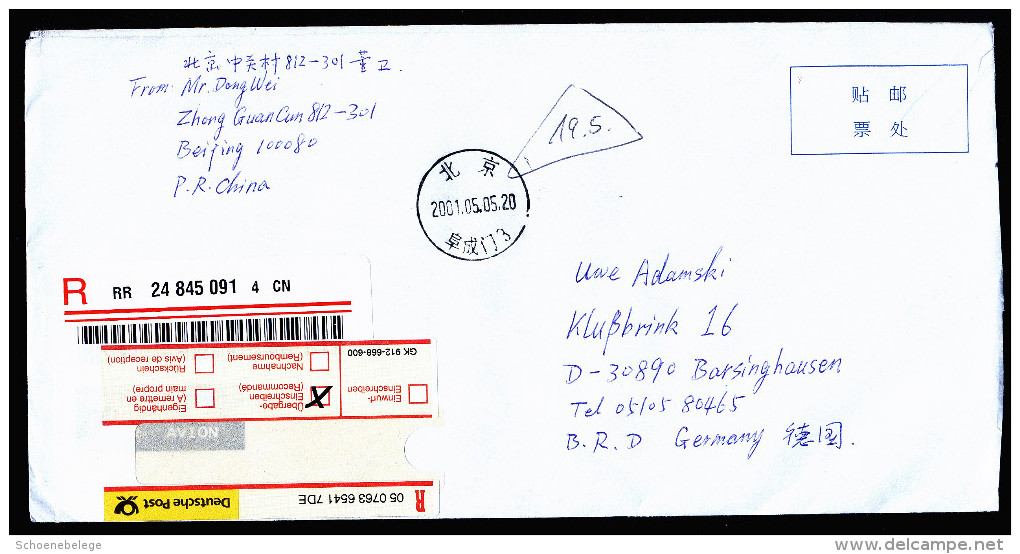 北京中关村812-301董卫.
From: Mr. Dong Wei
Zhong GuanCun 812-301
Beijing 100080
P.R. China
19.5.
贴 邮
票 处
北 京
2001.05.05.20
阜成门3
Uwe Adamski
Klußbrink 16
D-30890 Barsinghausen
Tel 05105 80465
B.R.D Germany 德国.
R RR 24 845 091 4 CN
GK 912-668-600
Einwurf-
Einschreiben
Nachnahme
(Remboursement)
Rückschein
(Avis de réception)
Übergabe-
Einschreiben
(Recommandé)
X
Eigenhändig
(A remettre en
main propre)
AVION
R
05 0763 6541 7DE
Deutsche Post
Schoenebelege
www.delcampe.net